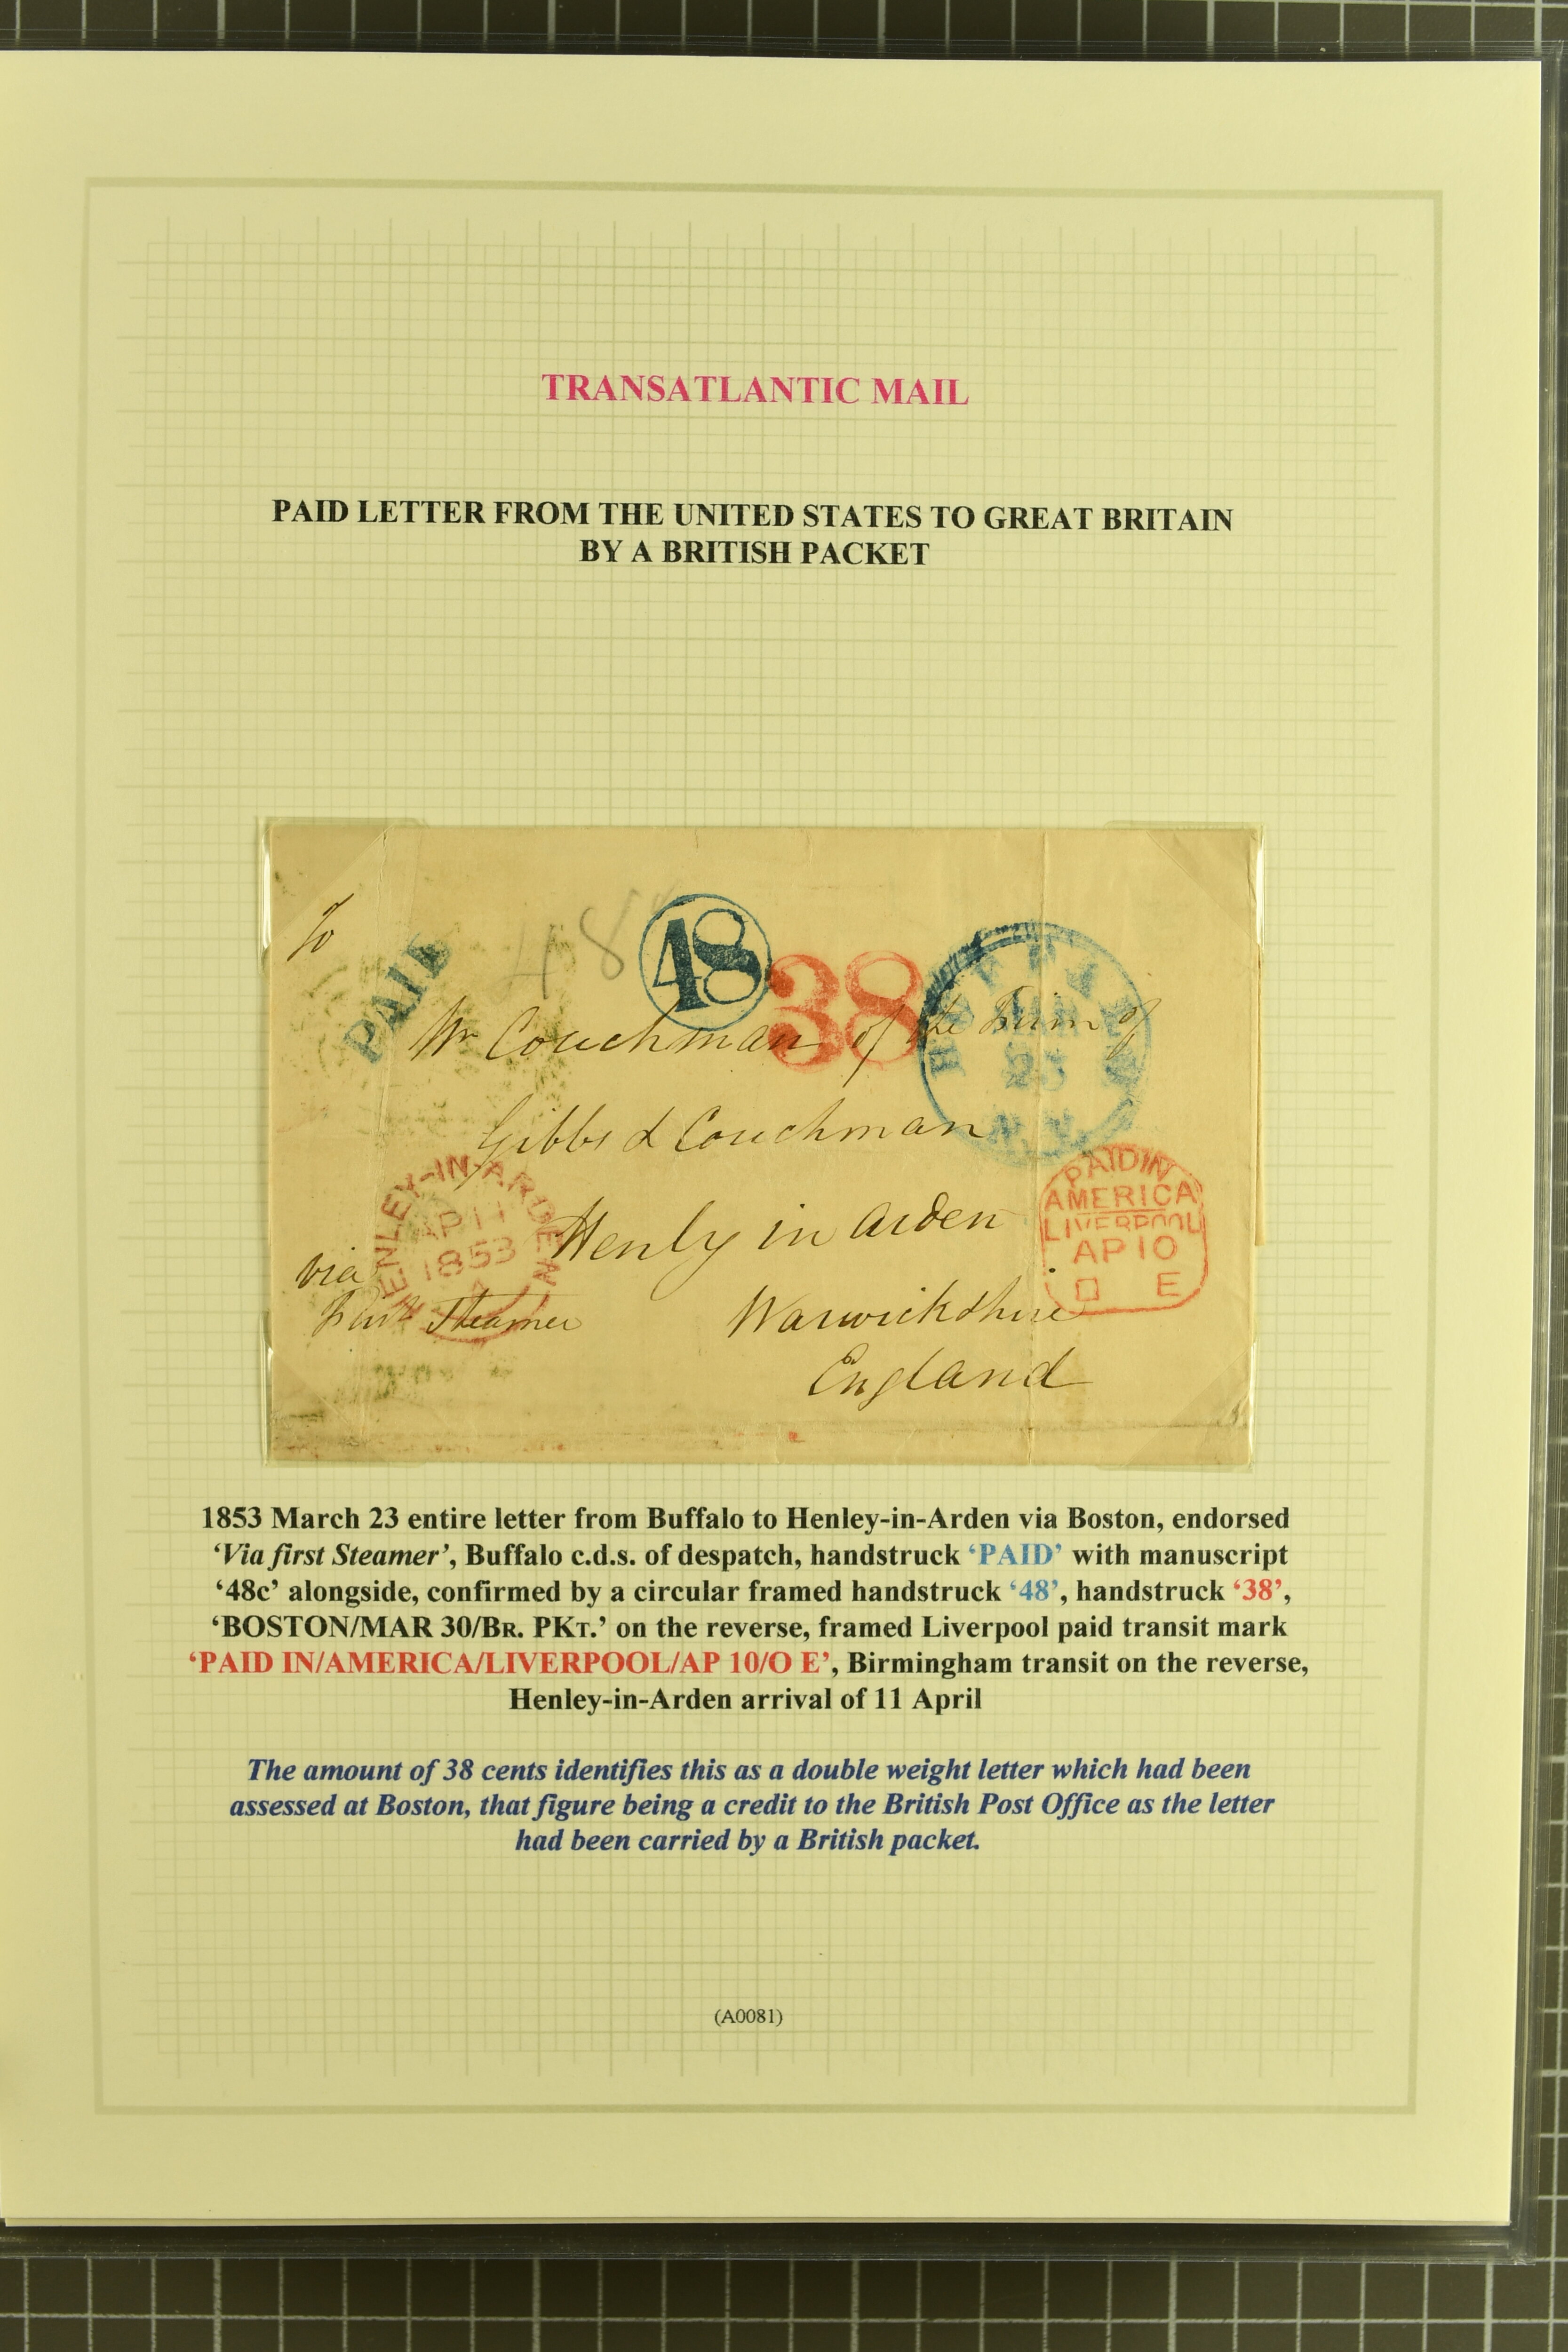 TRANSATLANTIC MAIL
PAID LETTER FROM THE UNITED STATES TO GREAT BRITAIN
BY A BRITISH PACKET
To
PAID
48
48
38
Mr Couchman of the Firm of
23
Gibbs & Couchman
HENLEY-IN-ARDEN
AP 11
1853
A
Henly in Arden
PAID IN
AMERICA
LIVERPOOL
AP 10
□ E
via
Steamer
Warwickshire
England
1853 March 23 entire letter from Buffalo to Henley-in-Arden via Boston, endorsed
‘Via first Steamer’, Buffalo c.d.s. of despatch, handstruck ‘PAID’ with manuscript
‘48c’ alongside, confirmed by a circular framed handstruck ‘48’, handstruck ‘38’,
‘BOSTON/MAR 30/BR. PKT.’ on the reverse, framed Liverpool paid transit mark
‘PAID IN/AMERICA/LIVERPOOL/AP 10/O E’, Birmingham transit on the reverse,
Henley-in-Arden arrival of 11 April
The amount of 38 cents identifies this as a double weight letter which had been
assessed at Boston, that figure being a credit to the British Post Office as the letter
had been carried by a British packet.
(A0081)